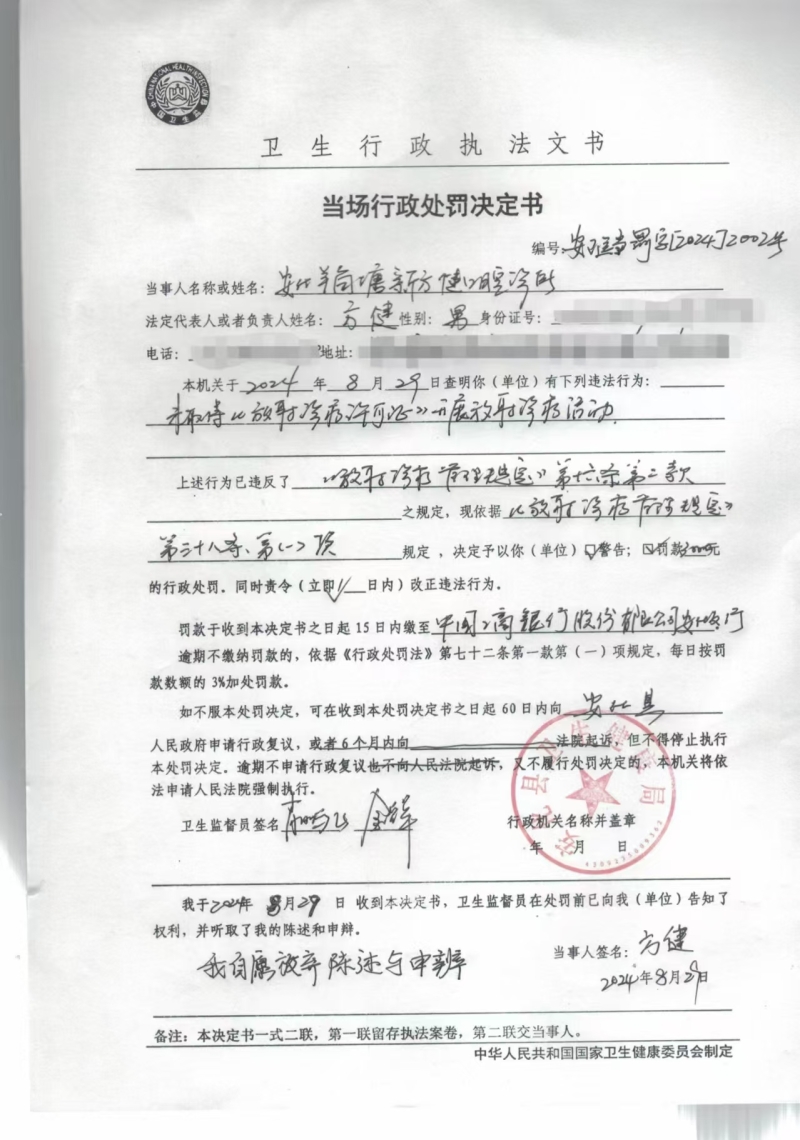 卫生行政执法文书
当场行政处罚决定书
编号:安卫医当罚字[2024]2002号
当事人名称或姓名:安化羊角塘新方健口腔诊所
法定代表人或者负责人姓名:方健 性别:男 身份证号:
电话: 地址:
本机关于2024年8月29日查明你(单位)有下列违法行为:
未取得《放射诊疗许可证》开展放射诊疗活动
上述行为已违反了《放射诊疗管理规定》第十六条第二款
之规定,现依据《放射诊疗管理规定》
第三十八条、第(一)项 规定,决定予以你(单位)☑警告;☑罚款3000元
的行政处罚。同时责令(立即/ 日内)改正违法行为。
罚款于收到本决定书之日起15日内缴至中国工商银行股份有限公司安化支行
逾期不缴纳罚款的,依据《行政处罚法》第七十二条第一款第(一)项规定,每日按罚
款数额的3%加处罚款。
如不服本处罚决定,可在收到本处罚决定书之日起60日内向安化县
人民政府申请行政复议,或者6个月内向 法院起诉,但不得停止执行
本处罚决定。逾期不申请行政复议也不向人民法院起诉,又不履行处罚决定的,本机关将依
法申请人民法院强制执行。
卫生监督员签名
行政机关名称并盖章
安化县卫生健康局
年 月 日
我于2024年8月29日 收到本决定书,卫生监督员在处罚前已向我(单位)告知了
权利,并听取了我的陈述和申辩。
当事人签名:方健
我自愿放弃陈述与申辩
2024年8月29日
备注:本决定书一式二联,第一联留存执法案卷,第二联交当事人。
中华人民共和国国家卫生健康委员会制定